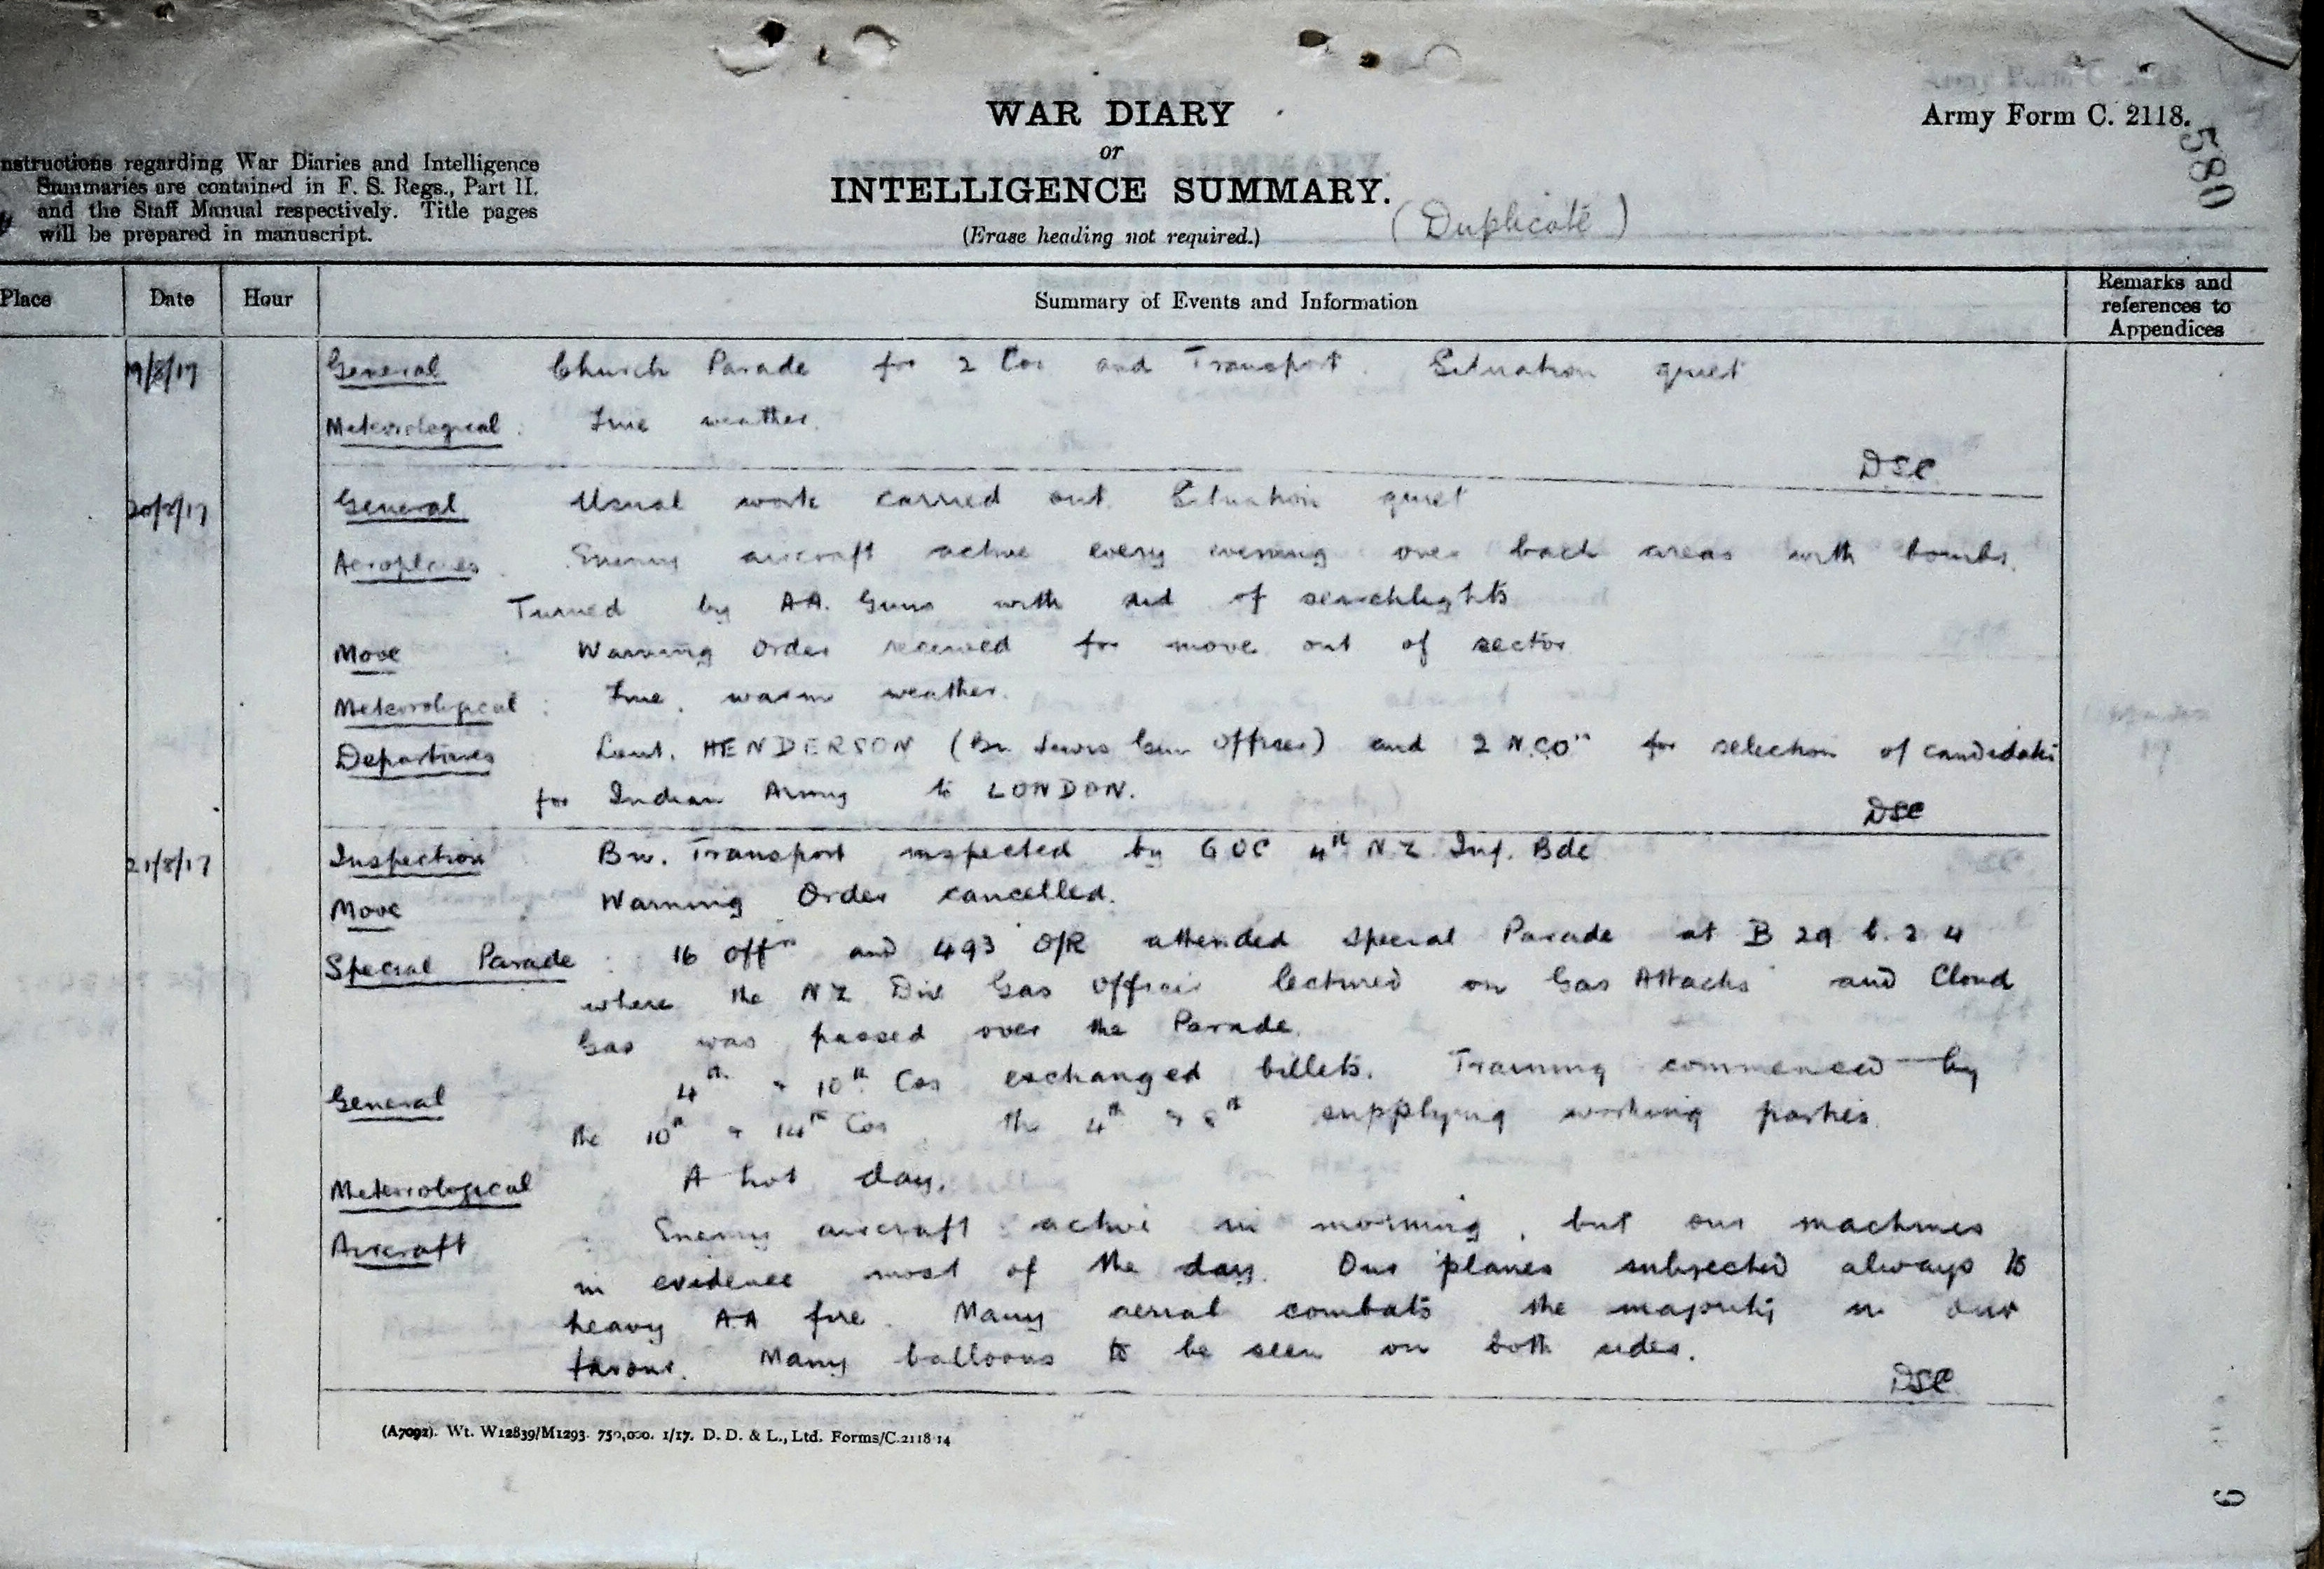 WAR DIARY
or
INTELLIGENCE SUMMARY.
(Erase heading not required.)
(Duplicate)
Army Form C. 2118.
580
nstructions regarding War Diaries and Intelligence
Summaries are contained in F. S. Regs., Part II.
and the Staff Manual respectively. Title pages
will be prepared in manuscript.
Place Date Hour Summary of Events and Information Remarks and references to Appendices
19/8/17 General Church Parade for 2 Cos and Transport. Situation quiet
Meteorological: Fine weather.
DSC
20/8/17 General Usual work carried out. Situation quiet
Aeroplanes. Enemy aircraft active every evening over back areas with bombs.
Turned by AA. Guns with aid of searchlights
Move Warning Order received for move out of sector
Meteorological: Fine, warm weather.
Departures Lieut. HENDERSON (Bn. Lewis Gun Officer) and 2 N.C.O's for selection of candidates
for Indian Army to LONDON.
DSC
21/8/17 Inspection Bn. Transport inspected by GOC 4th NZ Inf. Bde
Move Warning Order cancelled.
Special Parade: 16 Offrs and 493 O/R attended special Parade at B 29 b. 2 4
where the NZ Div Gas Officer lectured on Gas Attacks and Cloud
Gas was passed over the Parade.
General 4th & 10th Cos exchanged billets. Training commenced by
the 10th & 14th Cos the 4th & 8th supplying working parties.
Meteorological A hot day.
Aircraft: Enemy aircraft active in morning, but our machines
in evidence most of the day. Our planes subjected always to
heavy AA fire. Many aerial combats the majority in our
favour. Many balloons to be seen on both sides.
DSC
(A7092). Wt. W12839/M1293. 750,000. 1/17. D. D. & L., Ltd. Forms/C.2118/14
6